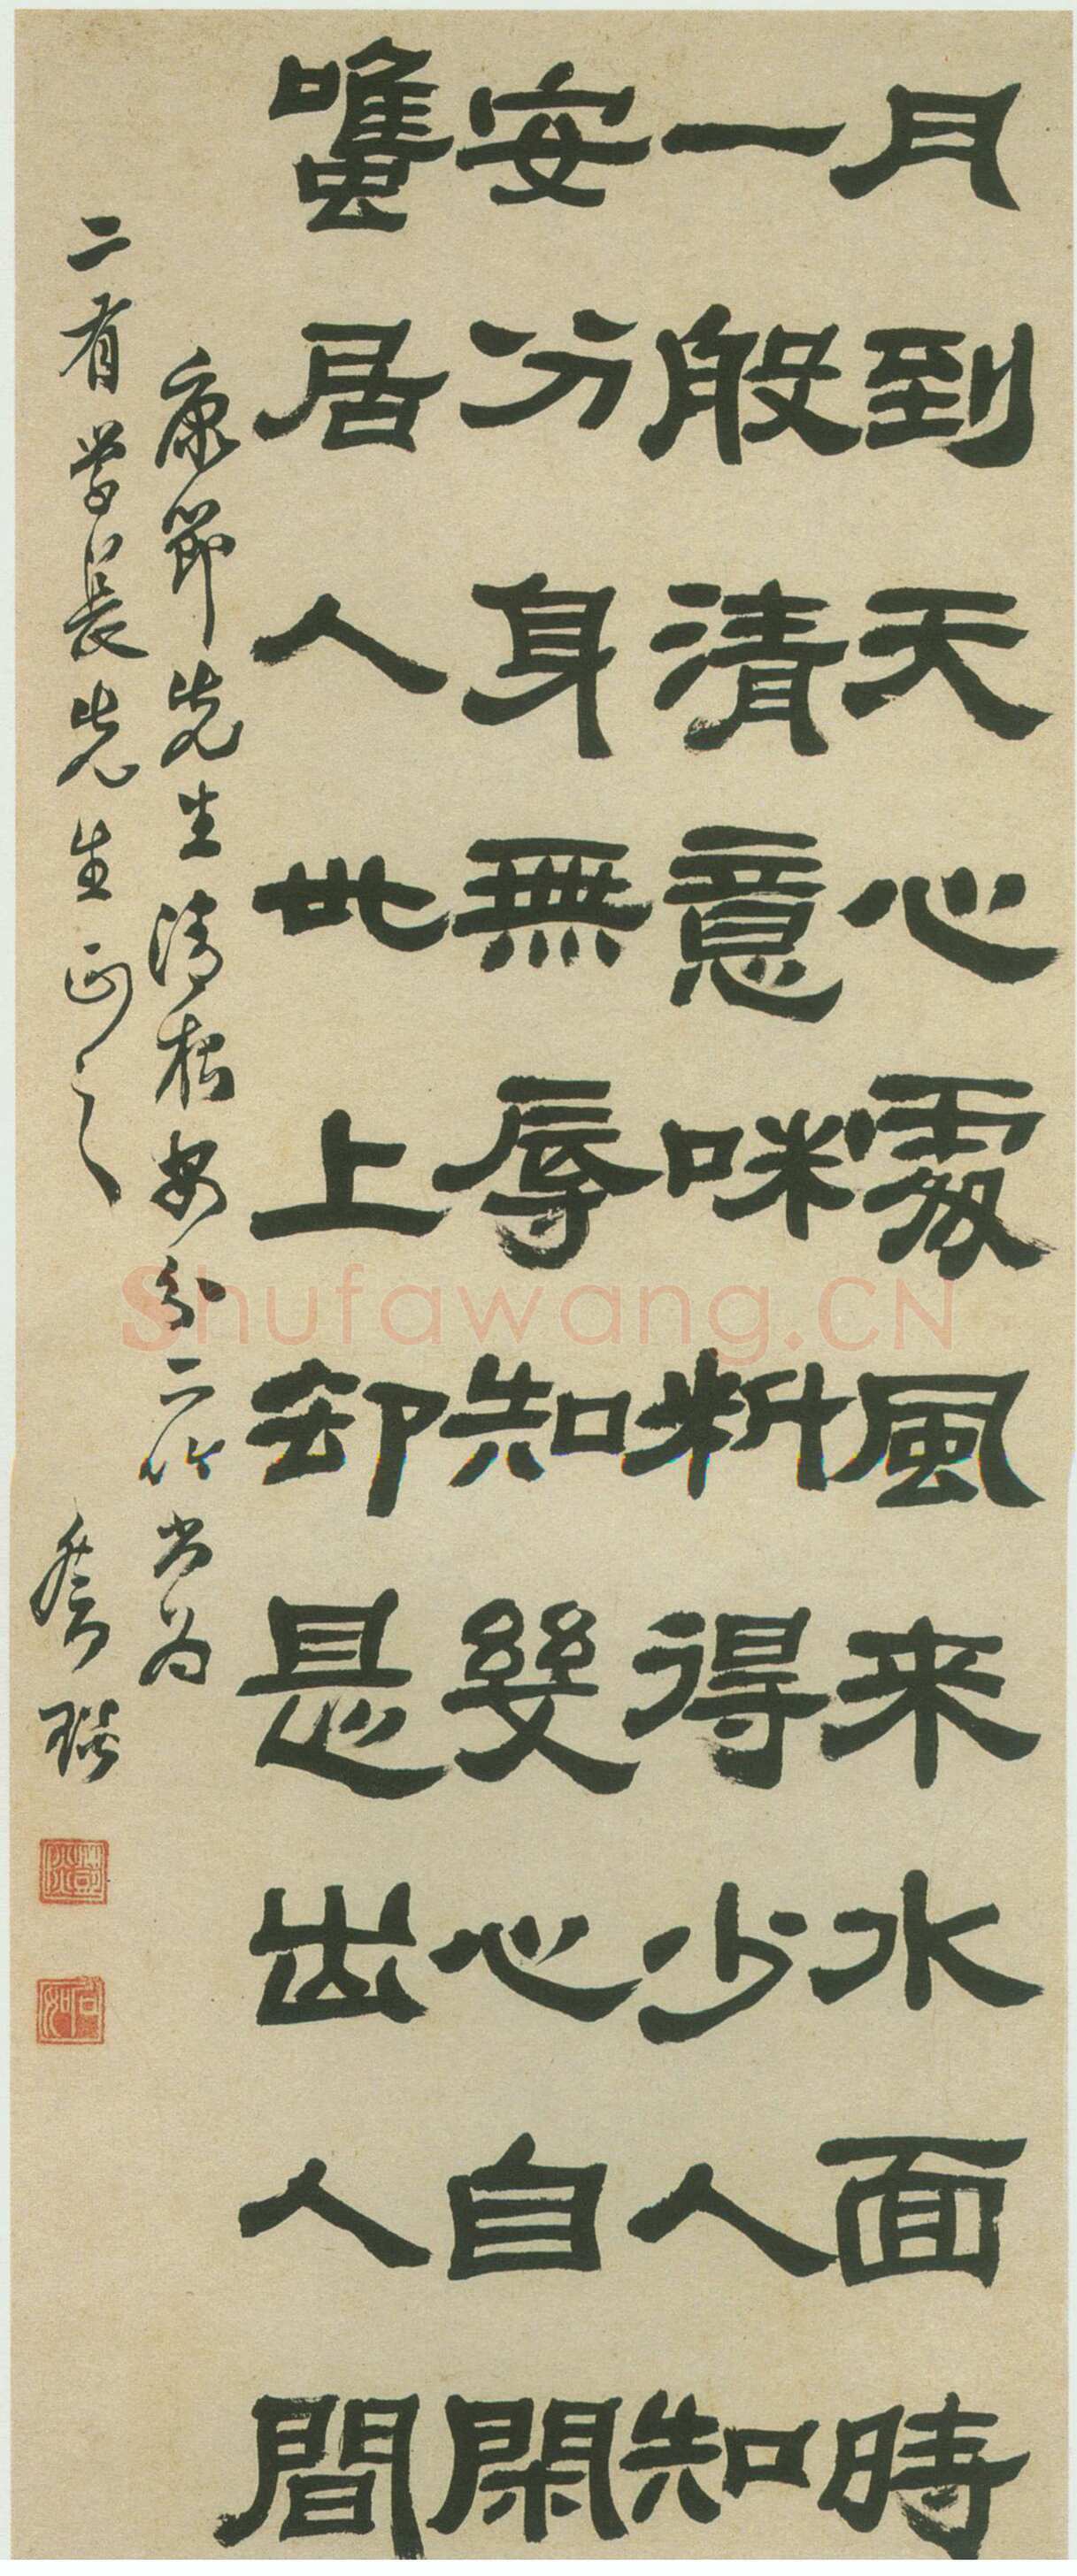 月到天心處風来水面時
一般清意味料得少人知
安分身無辱知幾心自閑
雖居人世上却是出人間
康節先生清夜安分二吟書為
二有学長先生正之
詹瑛
Shufawang.CN